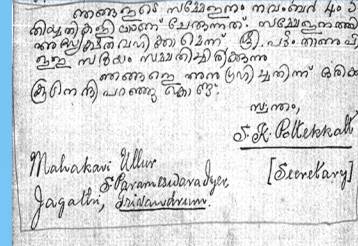 ഞങ്ങളുടെ സമ്മേളനം നവംബർ
തിയ്യതികളിലാണ് ചേരുന്നത്. സമ്മേളനത്തി
അദ്ധ്യക്ഷത വഹിക്കാമെന്ന് ശ്രീ. പട്ടം താണുപി
സദയം സമ്മതിച്ചിരിക്കുന്നു
ഞങ്ങളെ അനുഗ്രഹിച്ചതിന് ഒരിക്കൽ
നന്ദി പറഞ്ഞു കൊണ്ട്.
സ്വന്തം,
S. K. Pottekkatt
[Secretary]
Mahakavi Ullur
S. Parameswara Iyer,
Jagathi, Trivandrum.